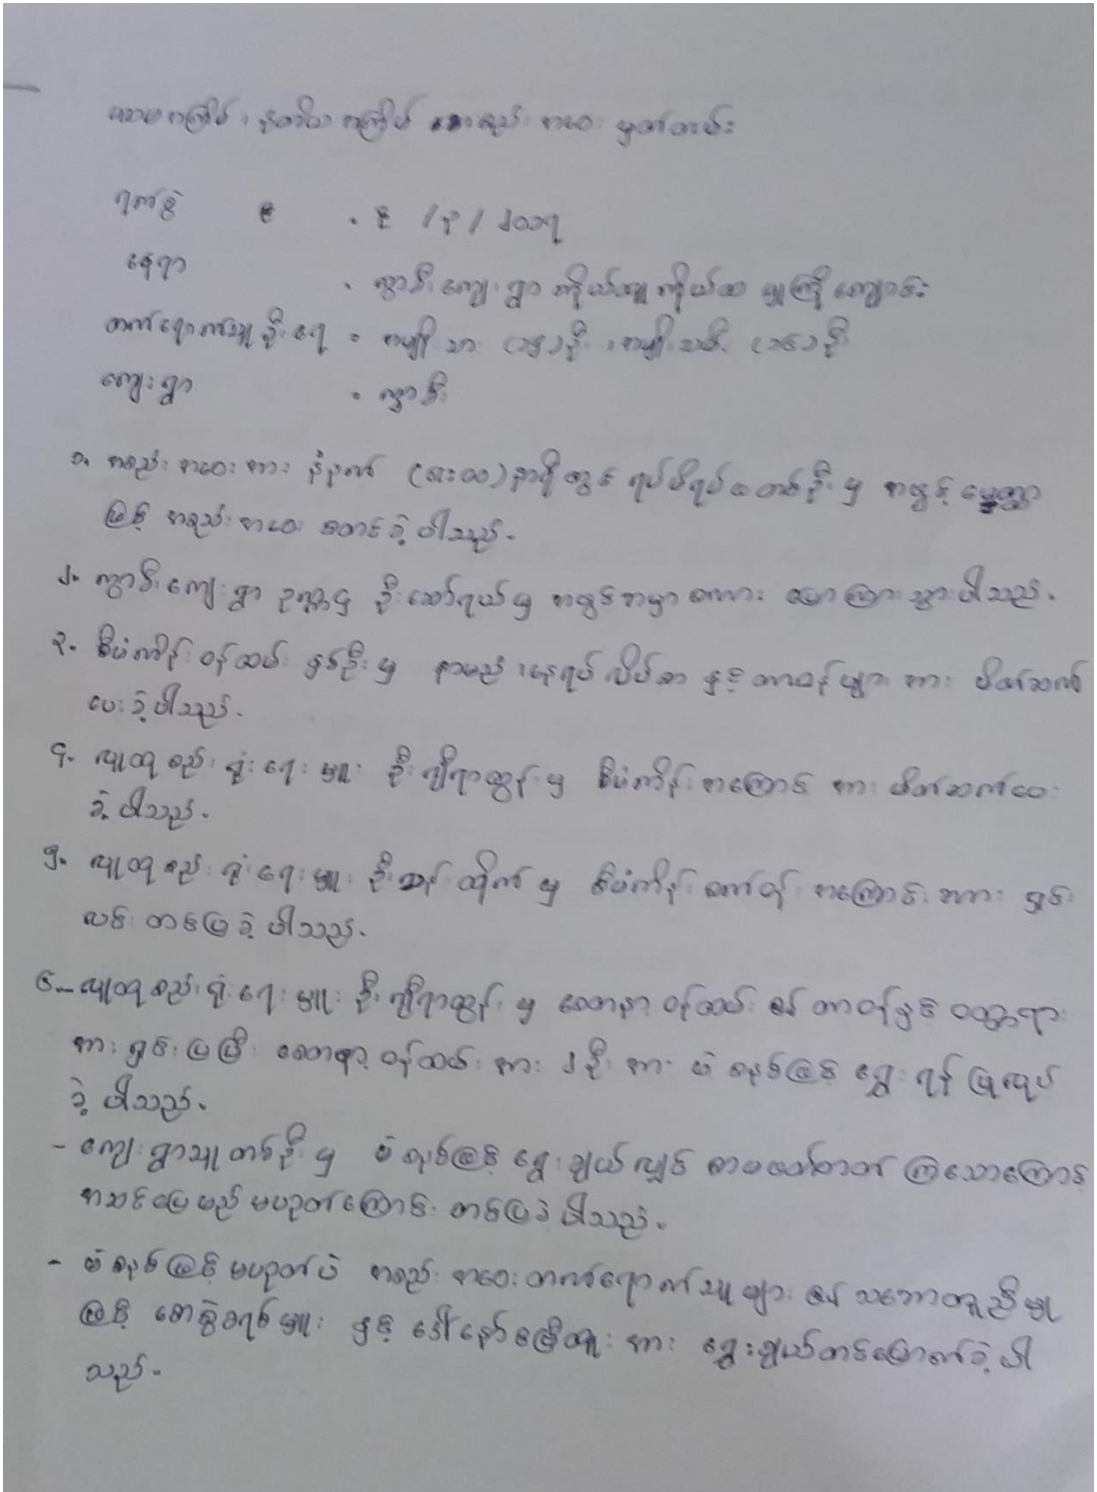 ပထမအကြိမ် ၊ ဒုတိယအကြိမ် အစည်းအဝေး မှတ်တမ်း
ရက်စွဲ - ၆ / ၃ / ၂၀၁၇
နေရာ - ကွာစီးကျေးရွာ ကိုယ်ထူကိုယ်ထ မူကြိုကျောင်း
တက်ရောက်သူဦးရေ - အမျိုးသား (၁၄)ဦး ၊ အမျိုးသမီး (၁၆)ဦး
ကျေးရွာ - ကွာစီး
၁. အစည်းအဝေးအား နံနက် (၈း၀၀)နာရီတွင် ရပ်မိရပ်ဖတစ်ဦးမှ အဖွင့်မေတ္တာ
ဖြင့် အစည်းအဝေး စတင်ခဲ့ပါသည်။
၂. ကွာစီးကျေးရွာ ဥက္ကဋ္ဌ ဦးဆော်ရယ်မှ အဖွင့်အမှာစကား ပြောကြားသွားပါသည်။
၃. စီမံကိန်းဝန်ထမ်း နှစ်ဦးမှ နာမည် ၊ နေရပ်လိပ်စာ နှင့် တာဝန်များအား မိတ်ဆက်
ပေးခဲ့ပါသည်။
၄. လူထုစည်းရုံးရေးမှူး ဦးဂျီရာထွန်းမှ စီမံကိန်းအကြောင်းအား မိတ်ဆက်ပေး
ခဲ့ပါသည်။
၅. လူထုစည်းရုံးရေးမှူး ဦးအန်ထိုက်မှ စီမံကိန်း စက်ဝန်းအကြောင်းအား ရှင်း
လင်းတင်ပြခဲ့ပါသည်။
၆. လူထုစည်းရုံးရေးမှူး ဦးဂျီရာထွန်းမှ စေတနာ့ဝန်ထမ်း၏ တာဝန်နှင့် ဝတ္တရား
အား ရှင်းပြပြီး စေတနာ့ဝန်ထမ်းအား ၂ဦးအား မဲစနစ်ဖြင့် ရွေးရန် ပြုလုပ်
ခဲ့ပါသည်။
- ကျေးရွာသူတစ်ဦးမှ မဲစနစ်ဖြင့် ရွေးချယ်လျှင် စာမဖတ်တတ်ကြသောကြောင့်
အဆင်ပြေမည်မဟုတ်ကြောင်း တင်ပြခဲ့ပါသည်။
- မဲစနစ်ဖြင့်မဟုတ်ပဲ အစည်းအဝေးတက်ရောက်သူများ၏ သဘောတူညီမှု
ဖြင့် စောခွဲခရစ်မှူး နှင့် ဒေါ်နော်ဓမြီထူးအား ရွေးချယ်တင်မြောက်ခဲ့ပါ
သည်။